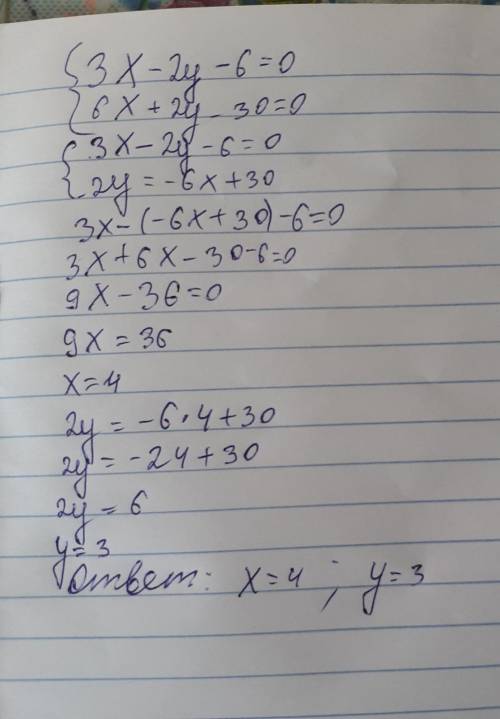 {3x-2y-6=0
{6x+2y-30=0
{3x-2y-6=0
{2y=-6x+30
3x-(-6x+30)-6=0
3x+6x-30-6=0
9x-36=0
9x=36
x=4
2y=-6·4+30
2y=-24+30
2y=6
y=3
Ответ: x=4; y=3